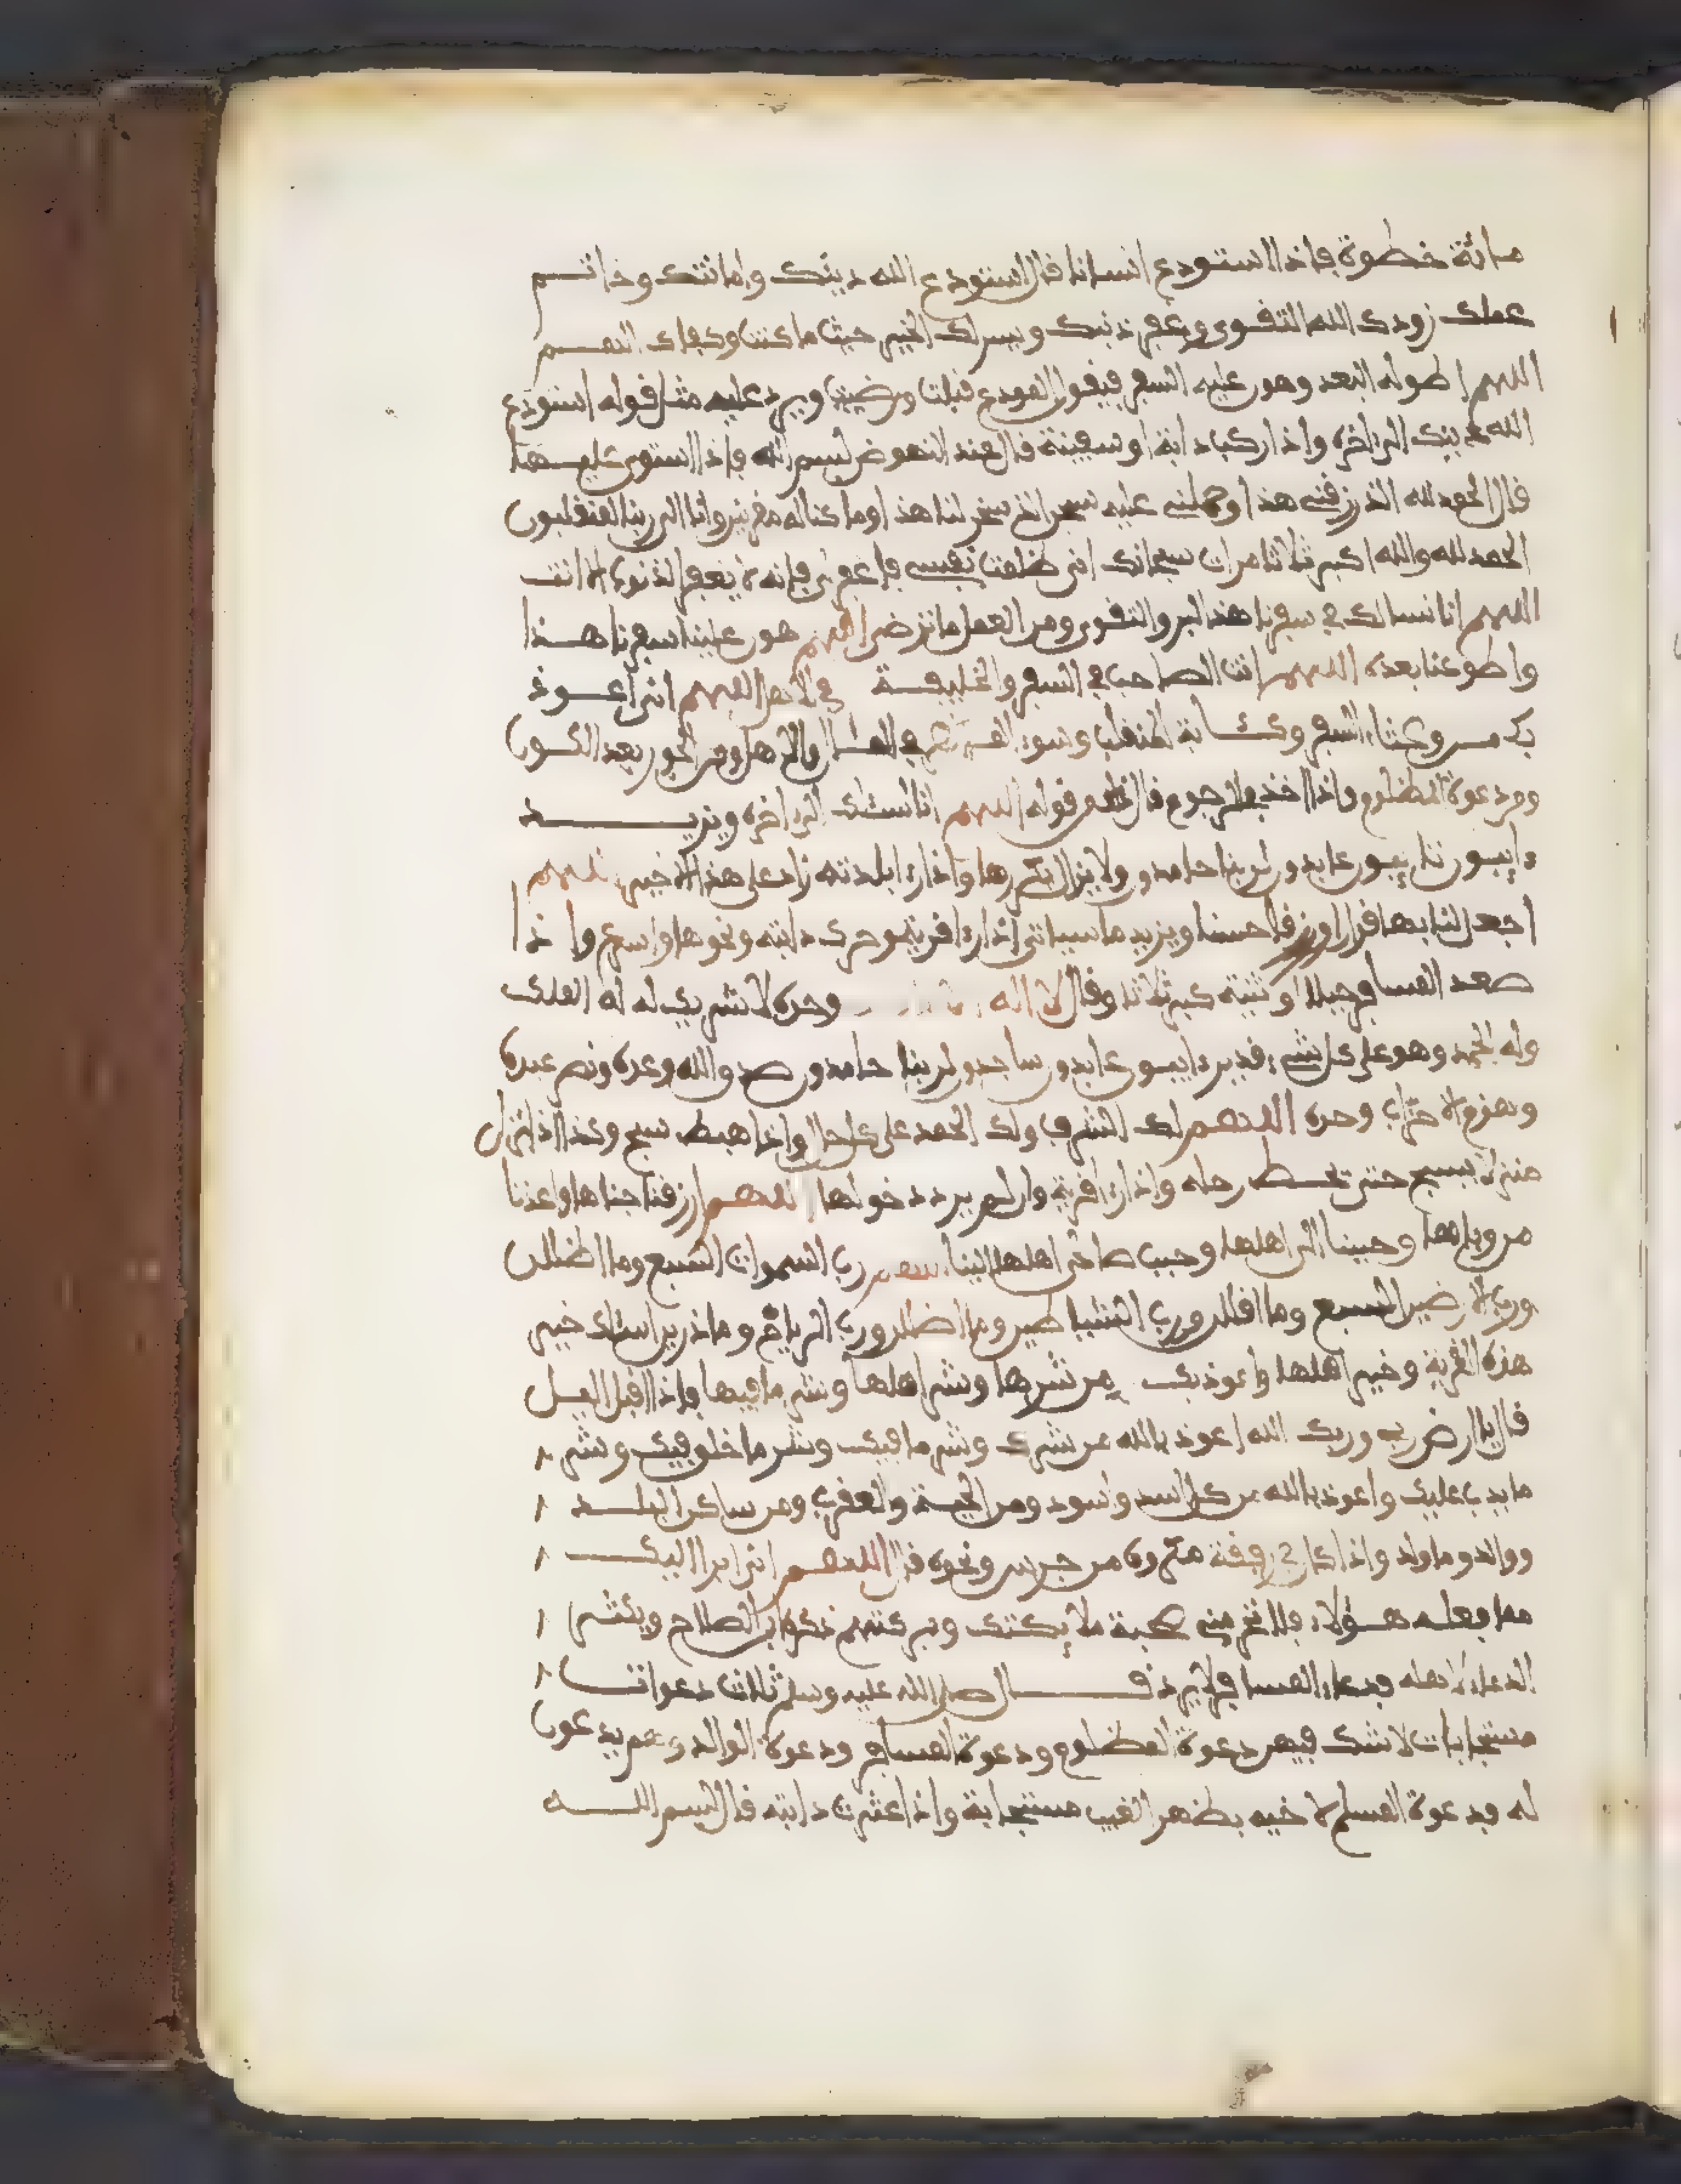 مائة خطوة فإذا استودع انسانا قال استودع الله دينك وامانتك وخاتم
عملك زودك الله التقوى وغفر ذنبك ويسر لك الخير حيث ما كنت وكفاك الهم
اللهم اطو له البعد وهون عليه السفر فيقول المودع قبلت ورضيت ويرد عليه مثل قوله استودع
الله دينك الى اخره واذا ركب دابة او سفينة قال عند النهوض بسم الله فإذا استوى عليها
قال الحمد لله الذي رزقني هذا وحملني عليه سبحن الذي سخر لنا هذا وما كنا له مقرنين وانا الى ربنا لمنقلبون
الحمد لله والله اكبر ثلاثا مرات سبحانك اني ظلمت نفسي فاغفر لي فإنه لا يغفر الذنوب الا انت
اللهم انا نسالك في سفرنا هذا البر والتقوى ومن العمل ما ترضى اللهم هون علينا سفرنا هذا
واطو عنا بعده اللهم انت الصاحب في السفر والخليفة في الاهل اللهم اني اعوذ
بك من وعثاء السفر وكئابة المنقلب وسوء المنظر في المال والاهل ومن الحور بعد الكون
ومن دعوة المظلوم واذا اخذ في الرجوع قال قوله اللهم انا نسئلك الى اخره ويزيد
ءايبون تايبون عابدون لربنا حامدون ولا يزال يكررها واذا رءا بلدته زاد على هذا الاخير اللهم
اجعل لنا بها قرارا ورزقا حسنا ويزيد ما سياتي اذا رءا قرية وحرك دابته ونحوها واسرع واذا
صعد المسافر جبلا او ثنية كبر ثلاثا وقال لا اله وحده لا شريك له له الملك
وله الحمد وهو على كل شيء قدير ءايبون عابدون ساجدون لربنا حامدون صدق الله وعده ونصر عبده
وهزم الاحزاب وحده اللهم لك الشرف ولك الحمد على كل حال واذا هبط سبح وكذا اذا نزل
منزلا يسبح حتى تحط رحله واذا رءا قرية وان لم يرد دخولها اللهم ارزقنا جناها واعذنا
من وباها وحببنا الى اهلها وحبب صالحي اهلها الينا اللهم رب السموات السبع وما اظللن
ورب الارضين السبع وما اقللن ورب الشياطين وما اضللن ورب الرياح وما ذرين اسئلك خير
هذه القرية وخير اهلها واعوذ بك من شرها وشر اهلها وشر ما فيها فإذا اقبل الليل
قال يا ارض ربي وربك الله اعوذ بالله من شرك وشر ما فيك وشر ما خلق فيك وشر
ما يدب عليك واعوذ بالله من كل اسد واسود ومن الحية والعقرب ومن ساكن البلد
ووالد وما ولد واذا كان في رفقة من جرس ونحوه قال اللهم اني ابرا اليك
مما فعله هؤلاء فلا تحرمني صحبة ملائكتك وبركتهم ويكثر
الدعاء لاهله فدعاء المسافر لا يرد قال صلى الله عليه وسلم ثلاث دعوات
مستجابات لا شك فيهن دعوة المظلوم ودعوة المسافر ودعوة الوالد وهم يدعون
له فدعوة المسلم لاخيه بظهر الغيب مستجابة واذا عثرت دابته قال بسم الله